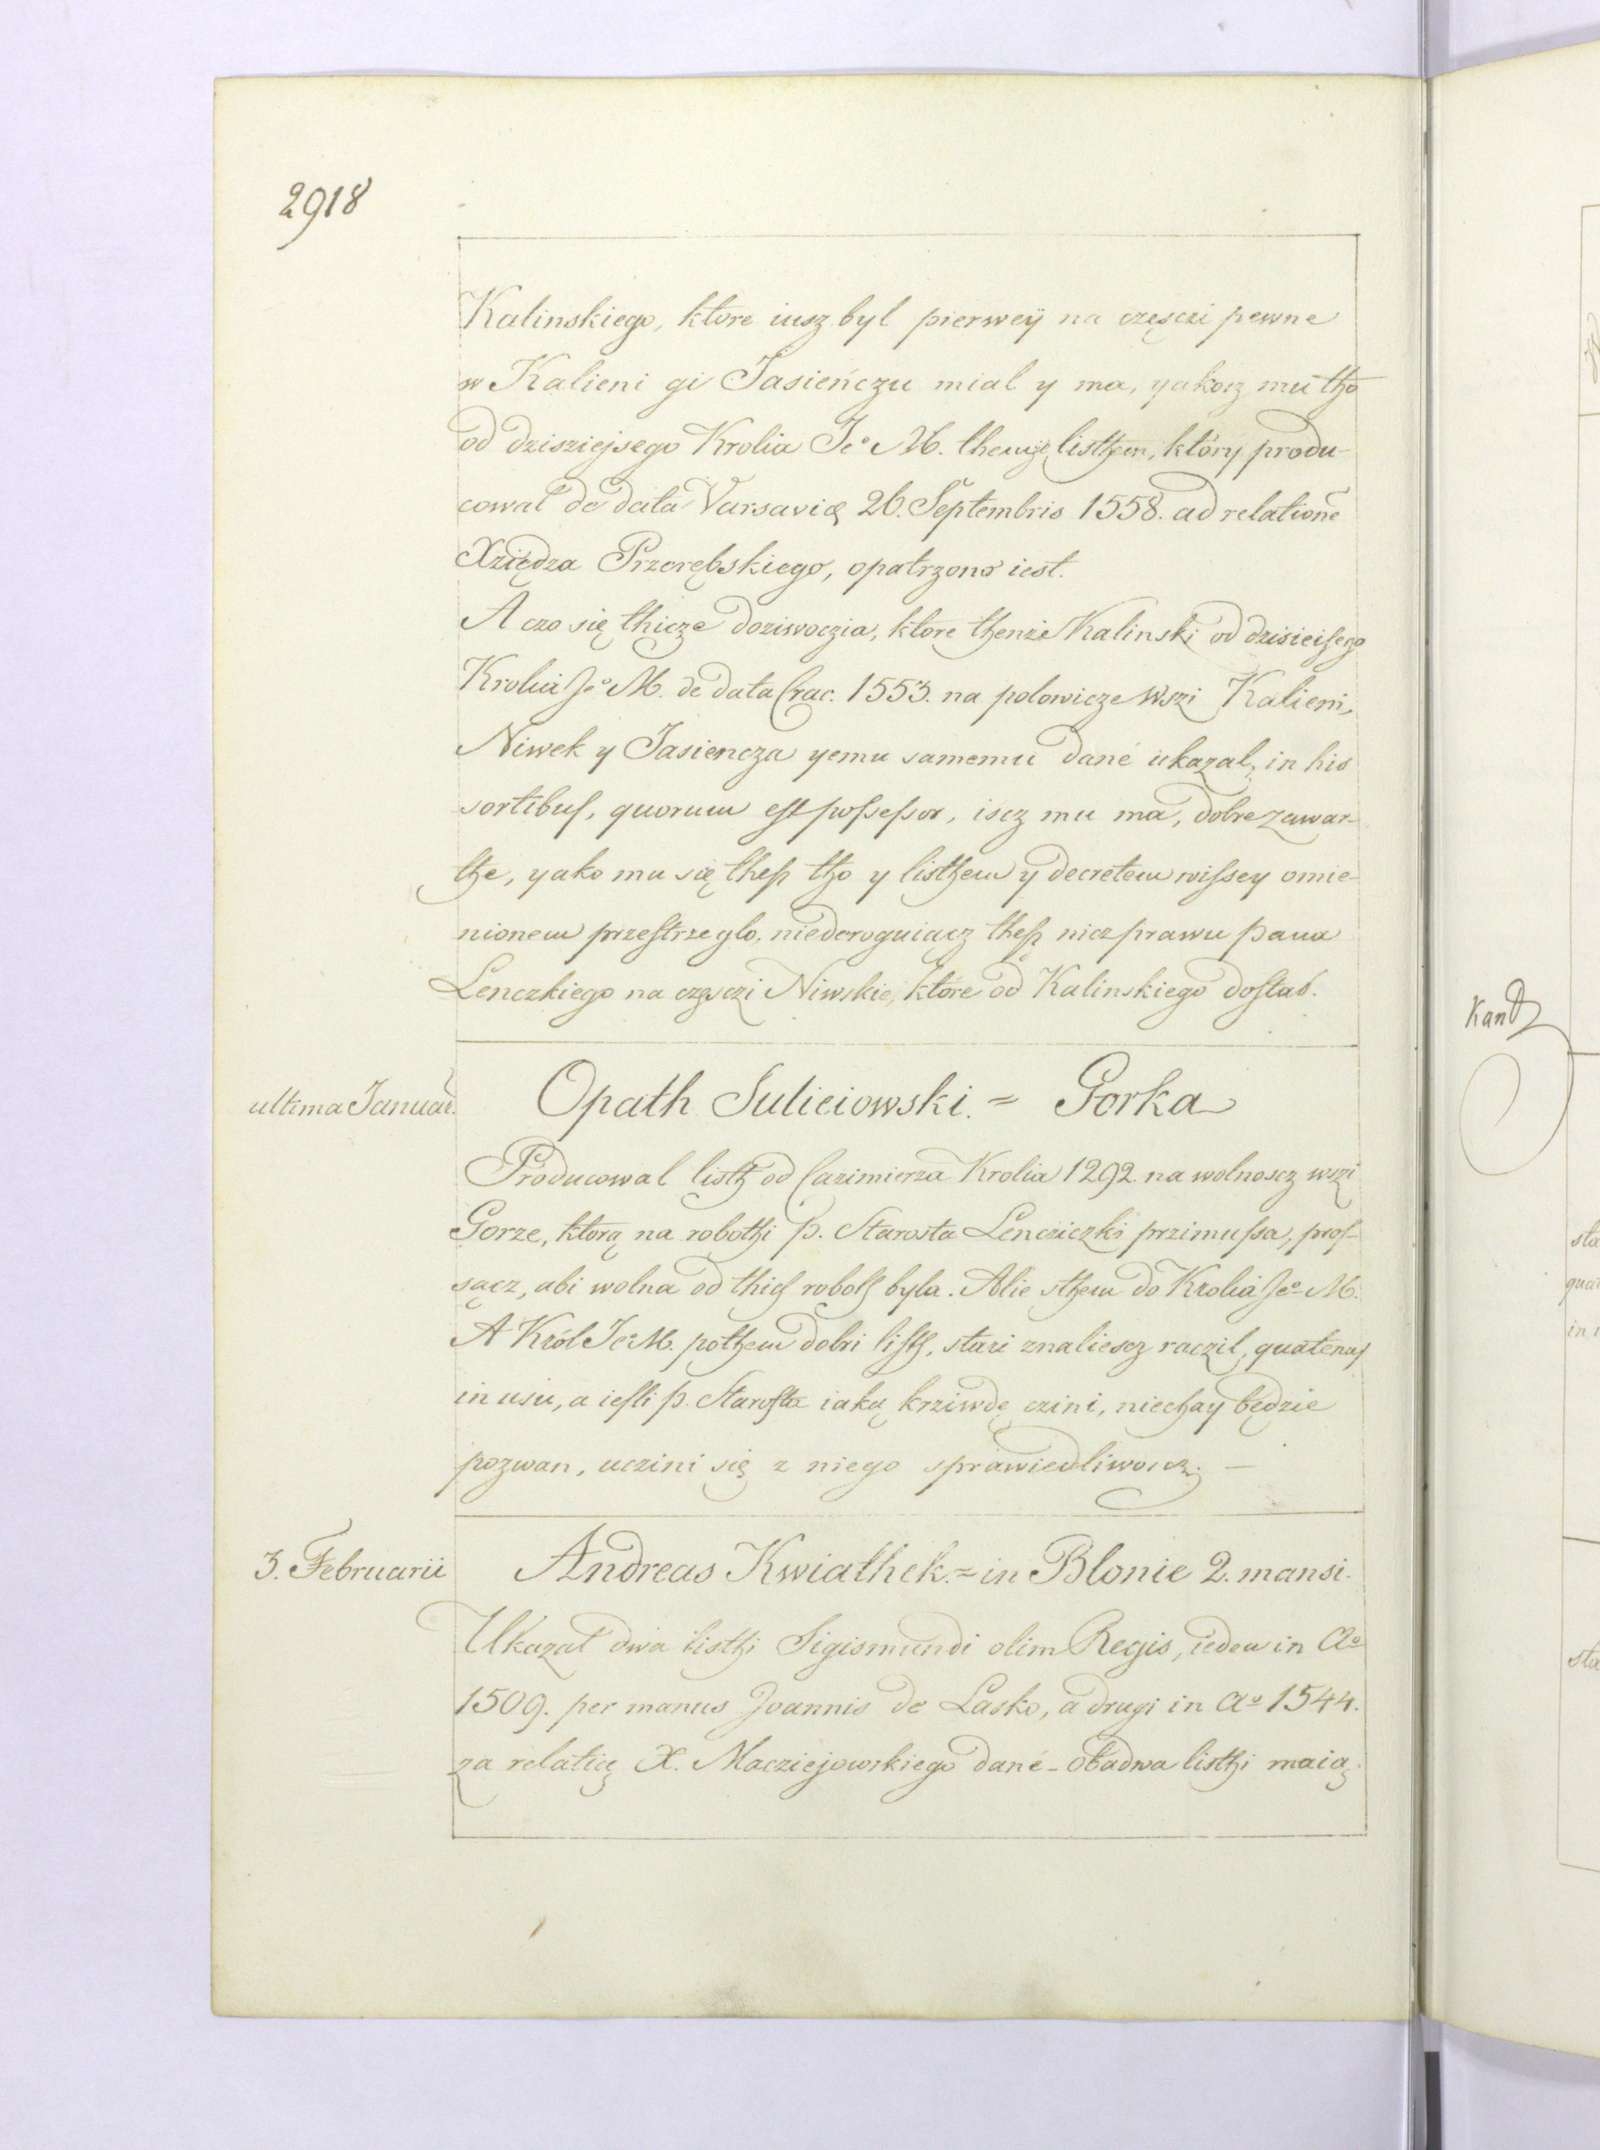 2918
Kalinskiego, ktore iusz byl pierwey na częsczi pewne
w Kalieni gi Jasieńczu mial y ma, yakosz mu tho
od dzisziejsego Krolia Jeº M. themże listhem, który produ-
cowal de data Varsavię 26. Septembris 1558. ad relatione
Xziędza Przerębskiego, opatrzono iest.
A czo się thicze doziwoczia, ktore thenże Kalinski od dzisieisego
Krolia Jeº M. de data Crac. 1553. na polowicze wszi Kalieni,
Niwek y Jasiencza yemu samemu dané ukazal, in his
sortibus, quorum est possessor, iscz mu ma, dobre zawar-
the, yako mu się thesz tho y listhem y decretem wissey omie-
nionem przestrzeglo, niederoguiącz thesz nicz prawu pana
Lenczkiego na częsczi Niwskie, które od Kalinskiego dostał.
ultima Januar. Opath Suliciowski. = Gorka
Producowal listh od Cazimierza Krolia 1292. na wolnoscz wszi
Gorze, ktorą na robothi p. Starosta Lencziczki przimussa, pros-
sącz, abi wolna od thich roboth byla. Alie sthem do Krolia Jeº M.
A Król Jeº M. pothem dobri listh, stari znaliescz raczil, quatenus
in usu, a iesli p. Starosta iaką krziwdę czini, niechay będzie
pozwan, uczini się z niego sprawiedliwoscz. —
3. Februarii Andreas Kwiathek. = in Blonie 2. mansi.
Ukazal dwa listhi Sigismundi olim Regis, ieden in Aº
1509. per manus Joannis de Lasko, a drugi in Aº 1544.
za relatią X. Macziejowskiego dané – obadwa listhi maią
Kand